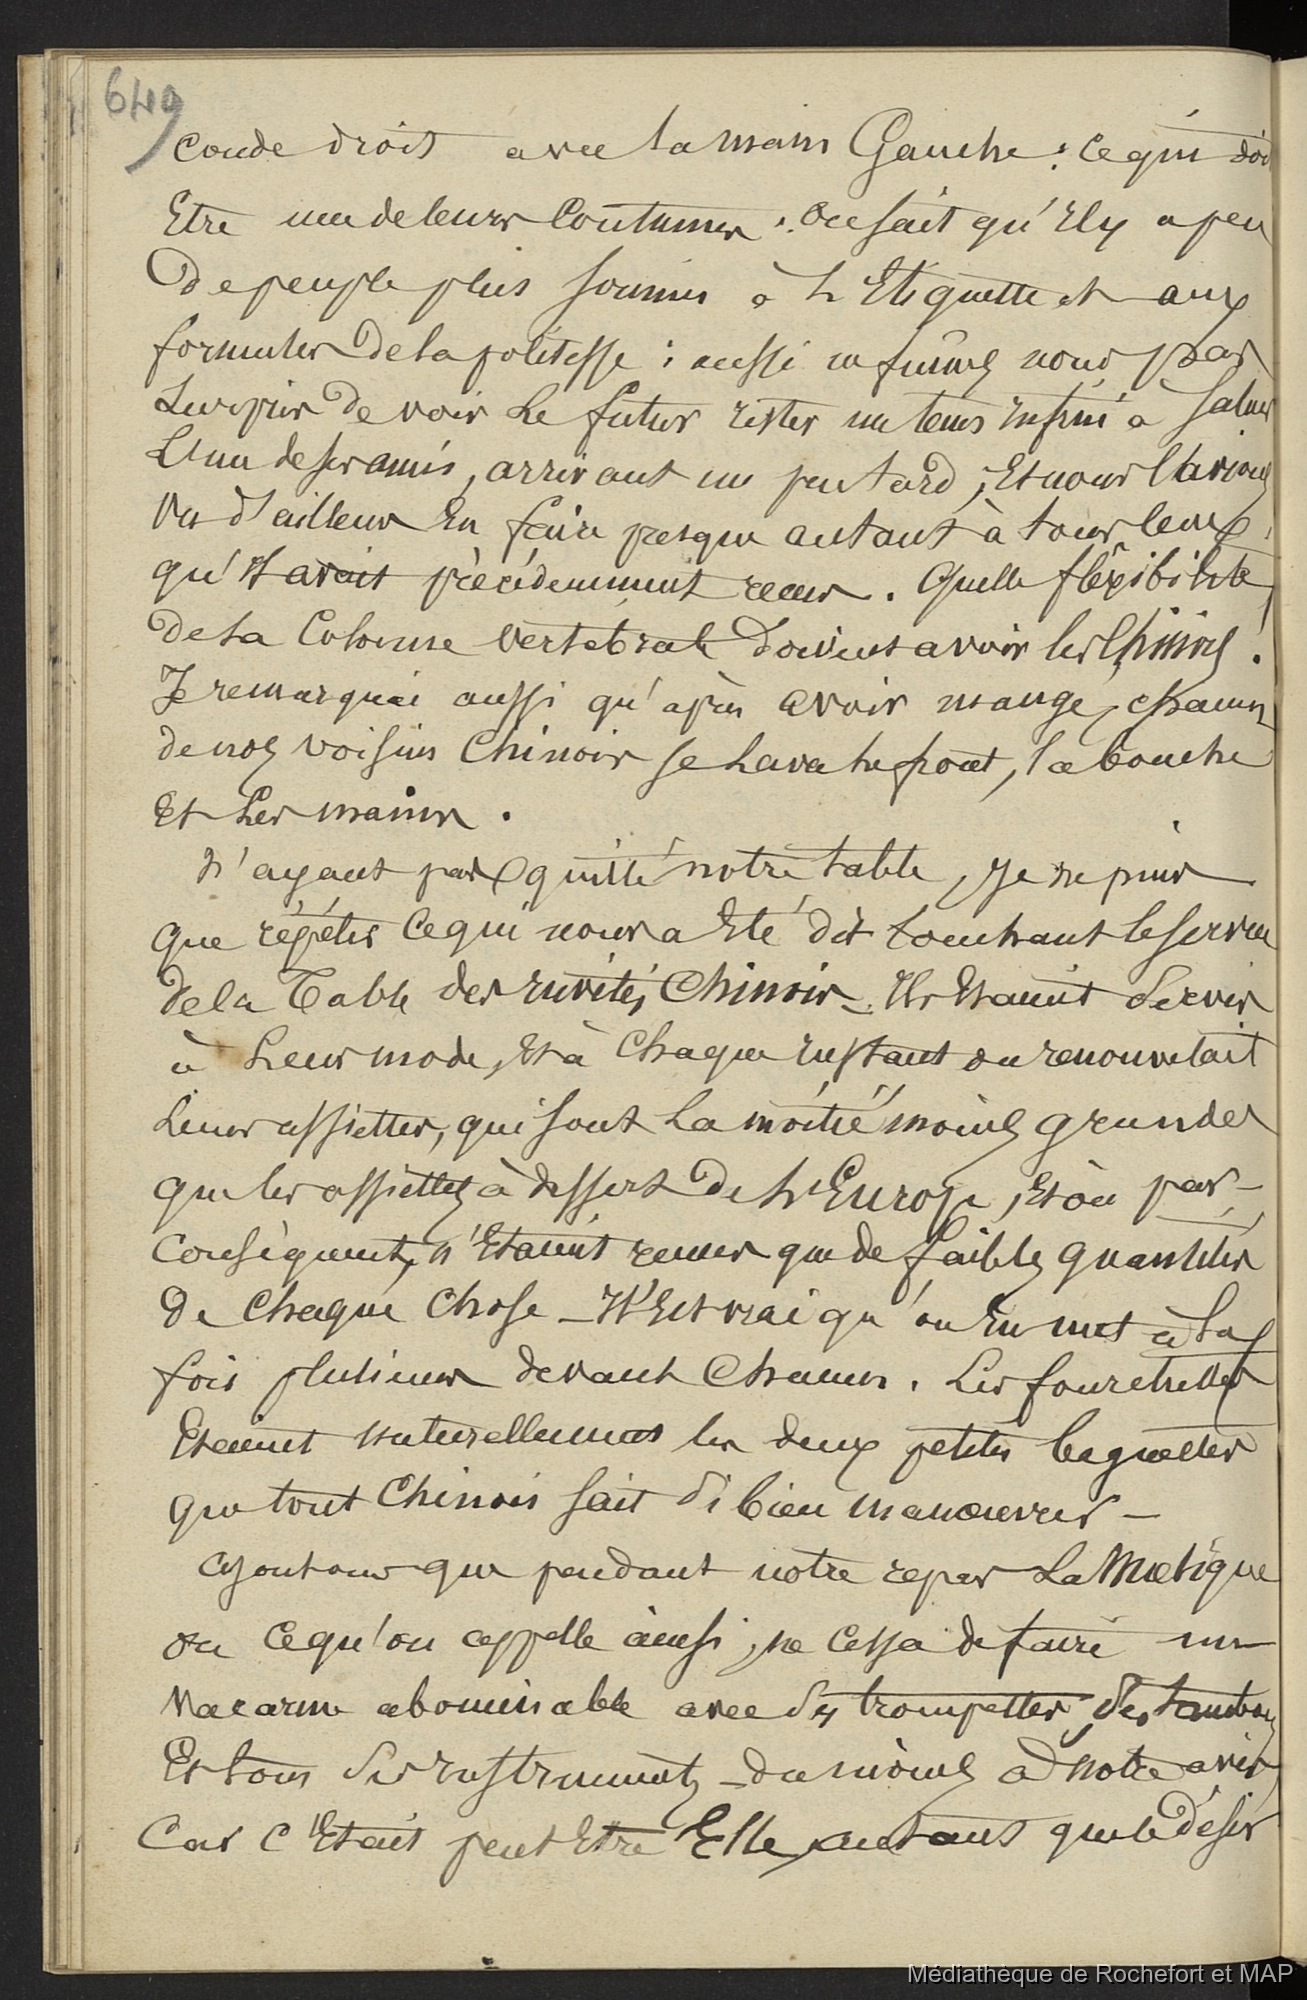 649
coude droit avec la main Gauche : ce qui doit
Etre une de leurs Coutumes . On sait qu'Il y a peu
de peuple plus soumis à L'Etiquette et aux
formules de la politesse ; aussi ne fûmes nous pas
surpris de voir Le futur rester un tems infini à saluer
L'un de ses amis, arrivant un peu tard ; Et nous l'avions
vu d'ailleurs En faire presque autant à tous ceux
qu'Il avait précédemment recus . Quelle fléxibilité
de la Colonne vertébrale doivent avoir les Chinois !
Je remarquai aussi qu'après avoir mangé, chacun
de nos voisins Chinois se Lava le front, la bouche
Et Les mains .
N'ayant pas quitté notre table, Je ne puis
que répéter ce qui nous a Eté dit touchant le service
de la Table des invités Chinois _ Ils Etaient Servis
à Leur mode, Et à Chaque instant on renouvelait
Leurs assiettes, qui sont La moitié moins grandes
que les assiettes à dessert de L'Europe, Et où par-
conséquent, n'Etaient remis que de faibles quantités
de Chaque Chose _ Il Est vrai qu'on En met à la
fois plusieurs devant Chacun . Les fourchettes
Etaient naturellement les deux petites baguettes
que tout Chinois sait si bien manœuvrer _
Ajoutons que pendant notre repas La Musique
ou ce qu'on appelle ainsi, ne Cessa de faire un
vacarme abominable avec des trompettes, des tambours
Et tous Des instruments _ du moins à notre avis,
Car C'Etait peut Etre Elle, autant que le Désir
Médiathèque de Rochefort et MAP